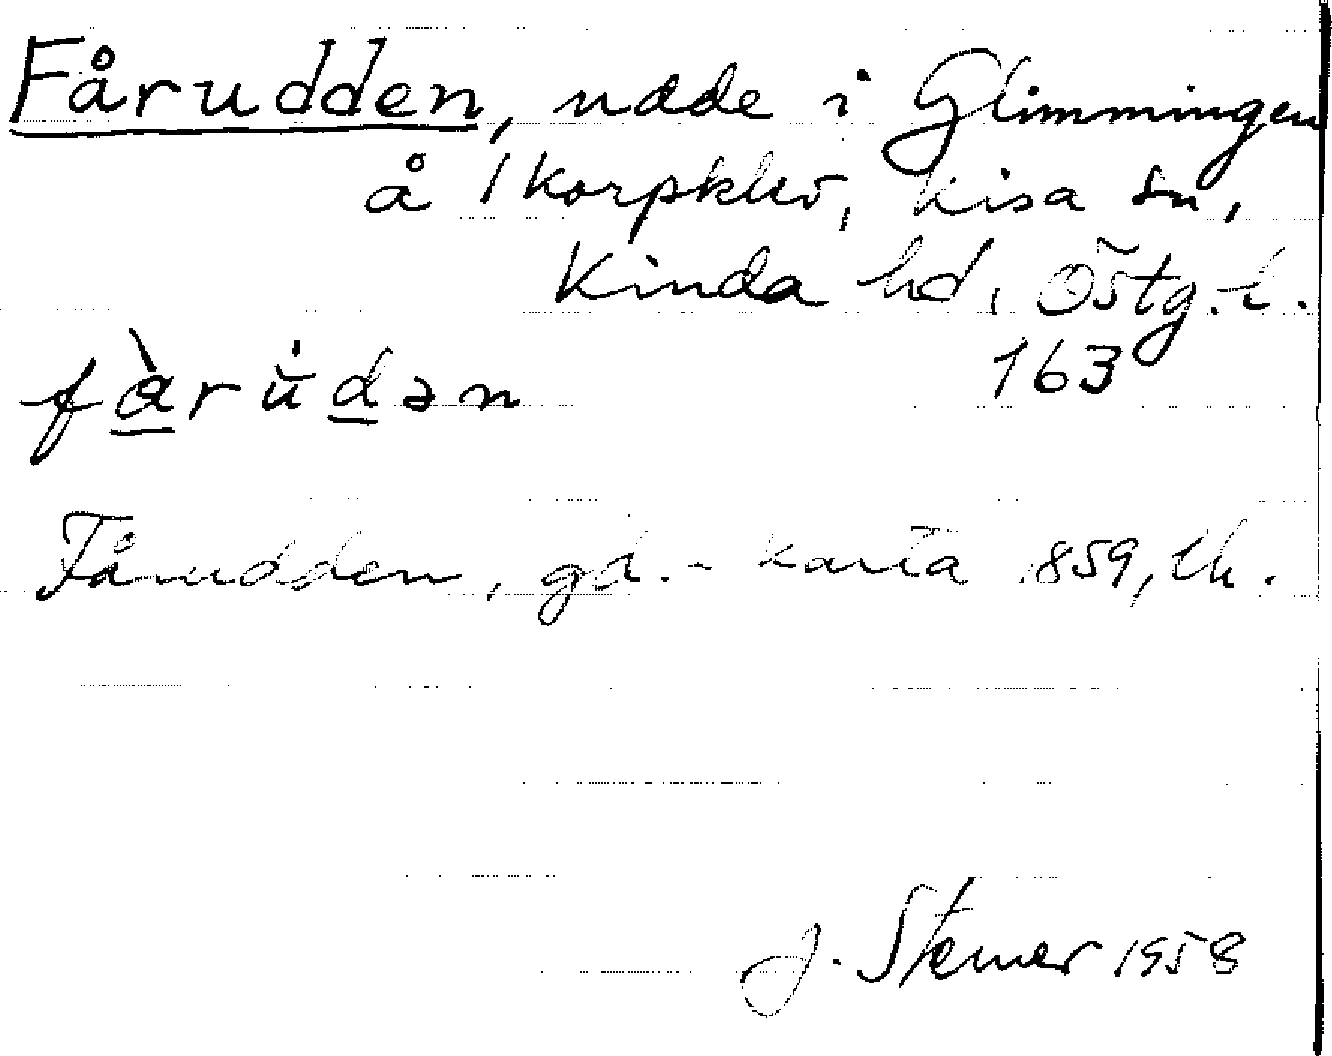 Fårudden, udde i Glimmingen
å 1 Korpklev, Kisa sn,
Kinda hd, Östg. l.
163
fàrùdən
Fårudden, gd. - karta 1859, lh.
J. Stemer 1958